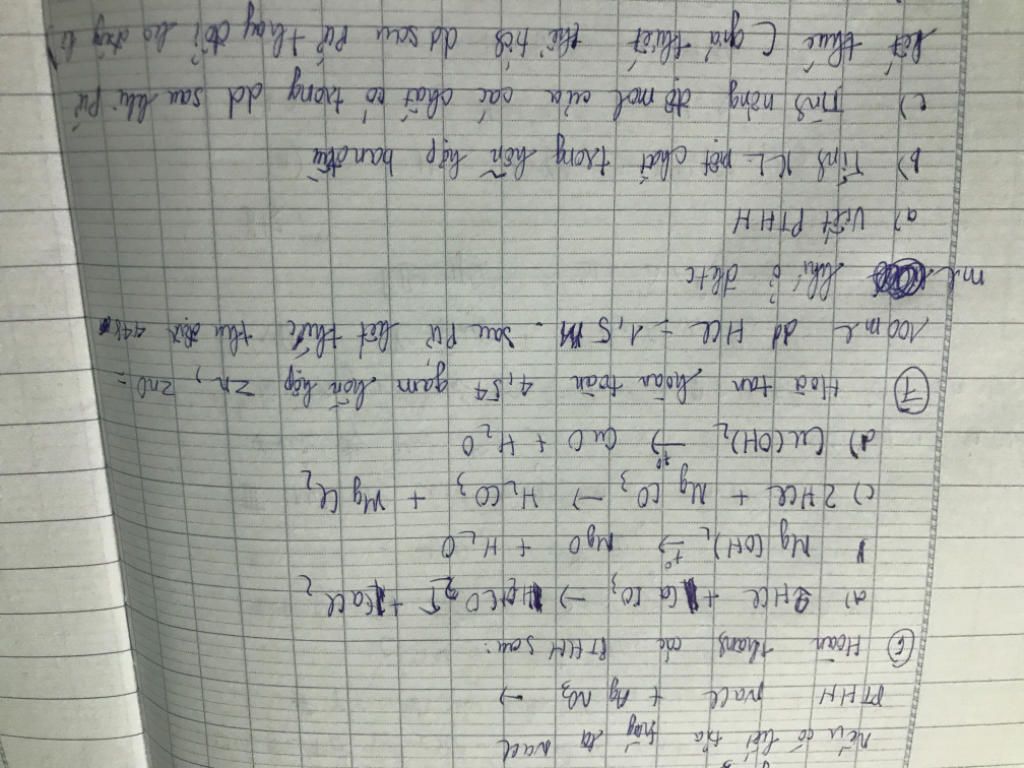 nếu có kết tủa trắng là NaCl
PTHH NaCl + AgNO3 →
⑥ Hoàn thành các PTHH sau:
a) 2HCl + CaCO3 → H2CO3 + CaCl2
b) Mg(OH)2 →t° MgO + H2O
c) 2HCl + MgCO3 → H2CO3 + MgCl2
d) Cu(OH)2 →t° CuO + H2O
⑦ Hoà tan hoàn toàn 4,54 gam hỗn hợp Zn, ZnO =
100ml dd HCl 1,5M. Sau PƯ kết thúc thu được 448
ml khí ở đktc
a) Viết PTHH
b) Tính KL một chất trong hỗn hợp ban đầu
c) Tính nồng độ mol của các chất có trong dd sau khi PƯ
kết thúc (giả thiết thể tích dd sau PƯ thay đổi ko đáng kể)